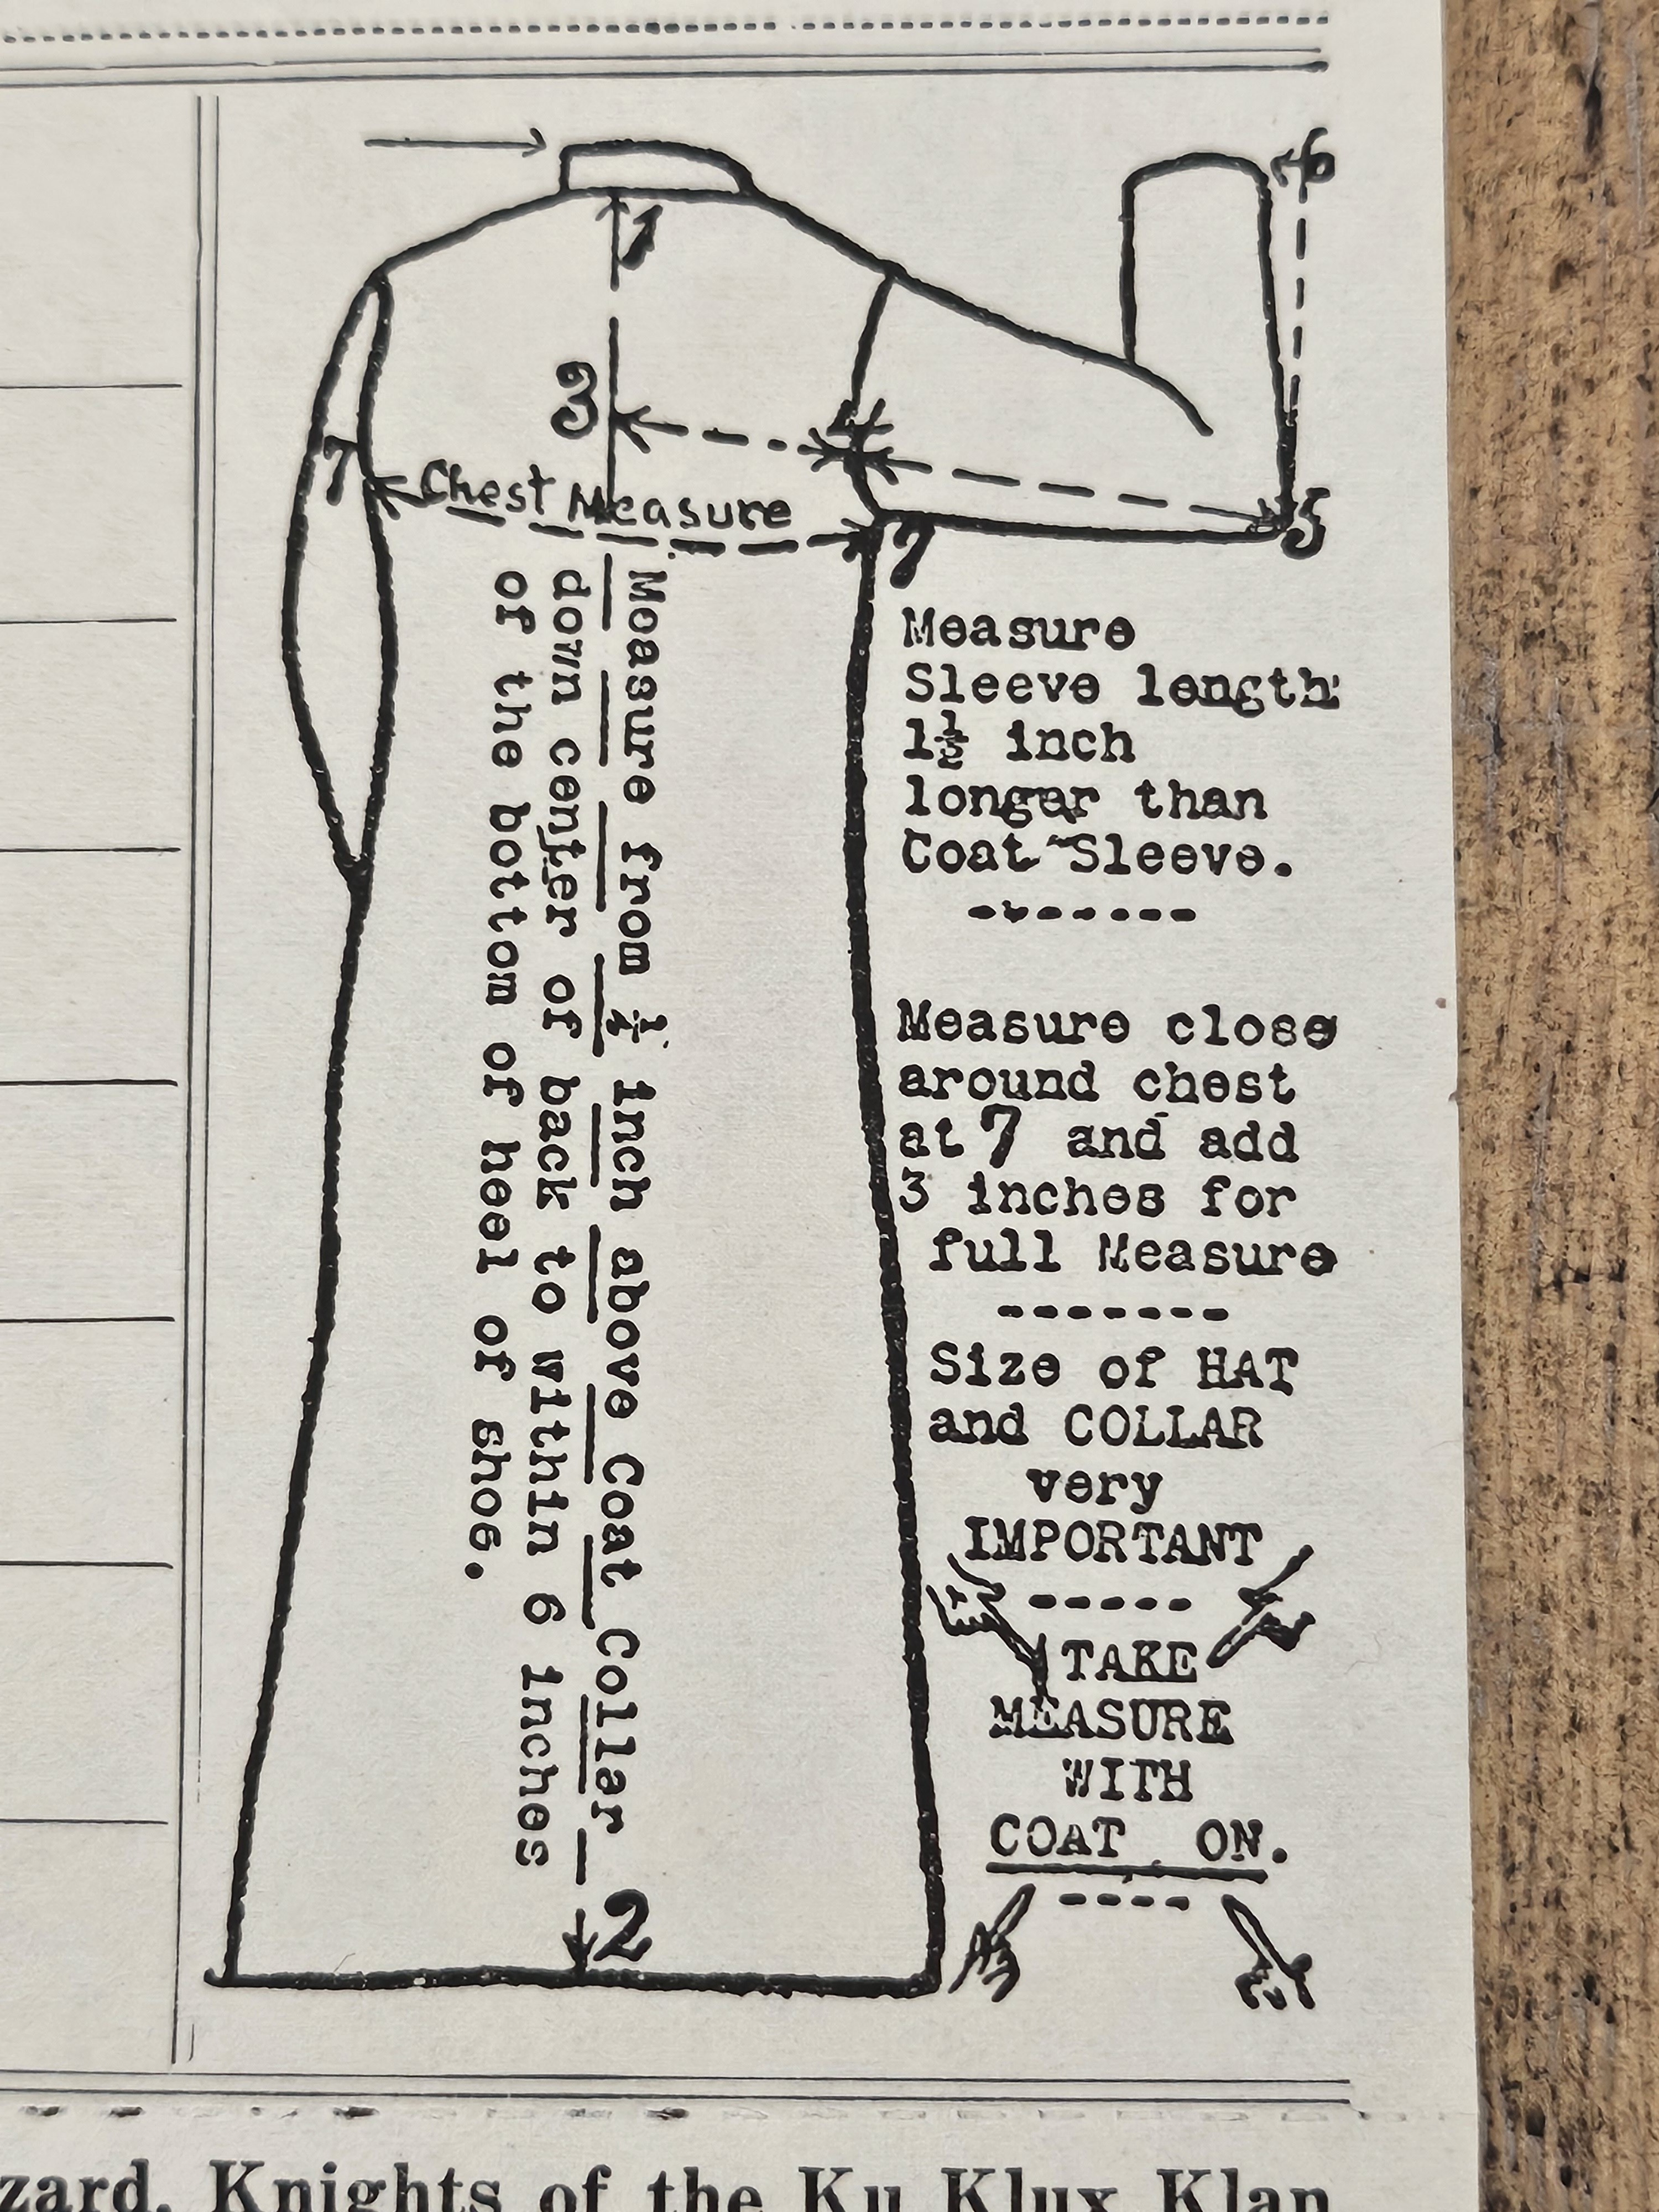 6
1
3
4
7
Chest Measure
5
7
Measure from ¼ inch above Coat Collar
down center of back to within 6 inches
of the bottom of heel of shoe.
2
Measure
Sleeve length
1½ inch
longer than
Coat Sleeve.
-------
Measure close
around chest
at 7 and add
3 inches for
full Measure
-------
Size of HAT
and COLLAR
very
IMPORTANT
-----
TAKE
MEASURE
WITH
COAT ON.
----
zard, Knights of the Ku Klux Klan